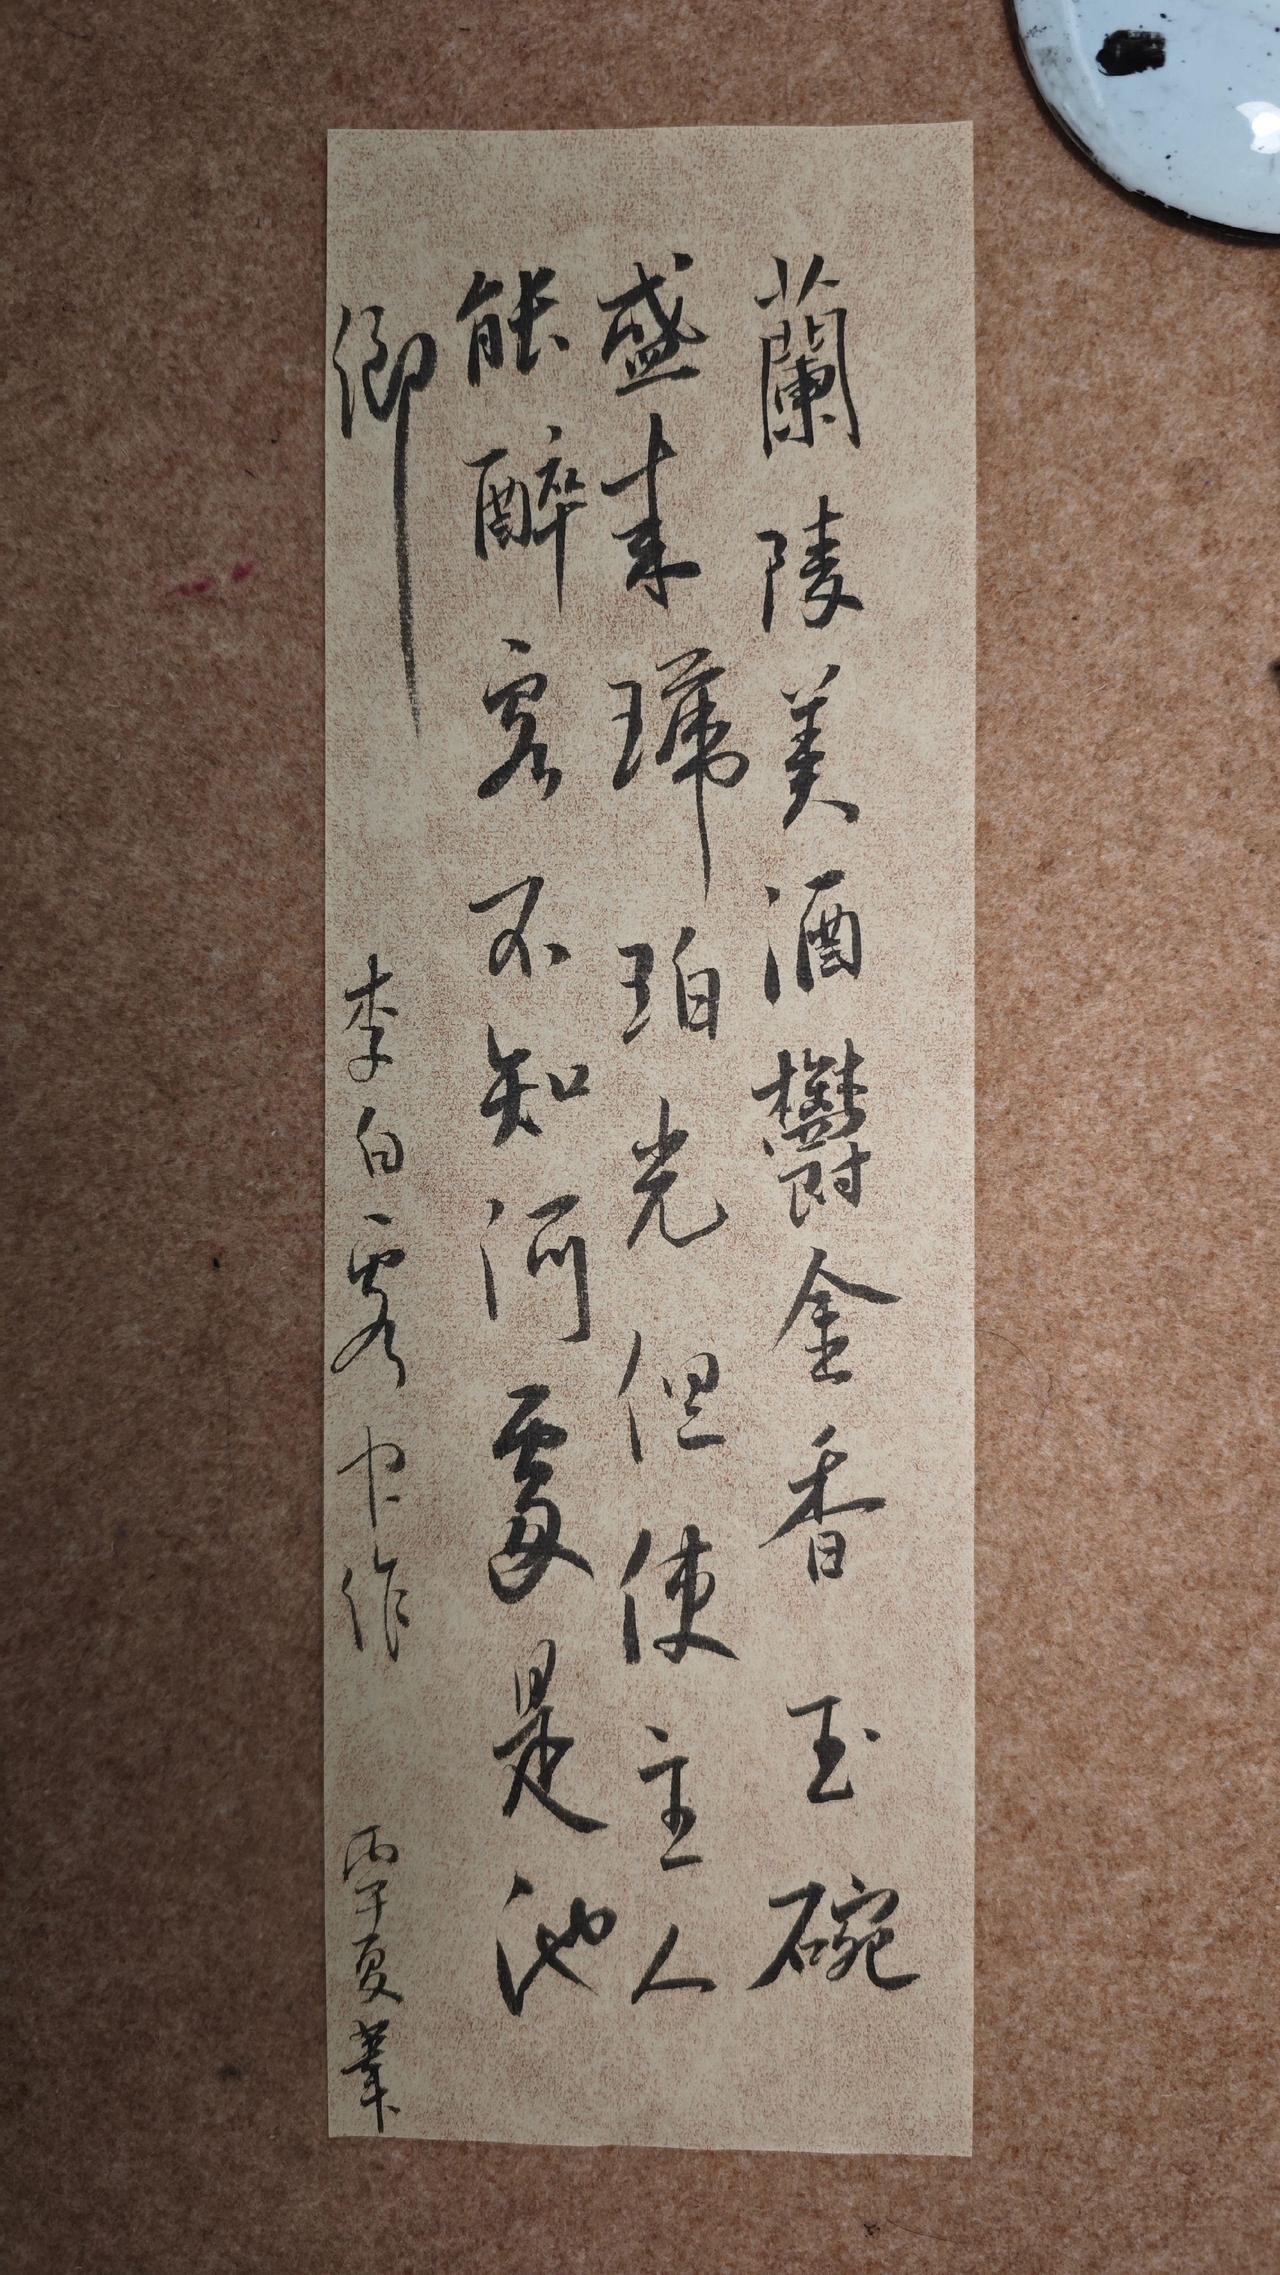 蘭陵美酒欝金香玉碗
盛来琥珀光但使主人
能醉客不知河處是池
鄉 李白客中作 丙子夏葦